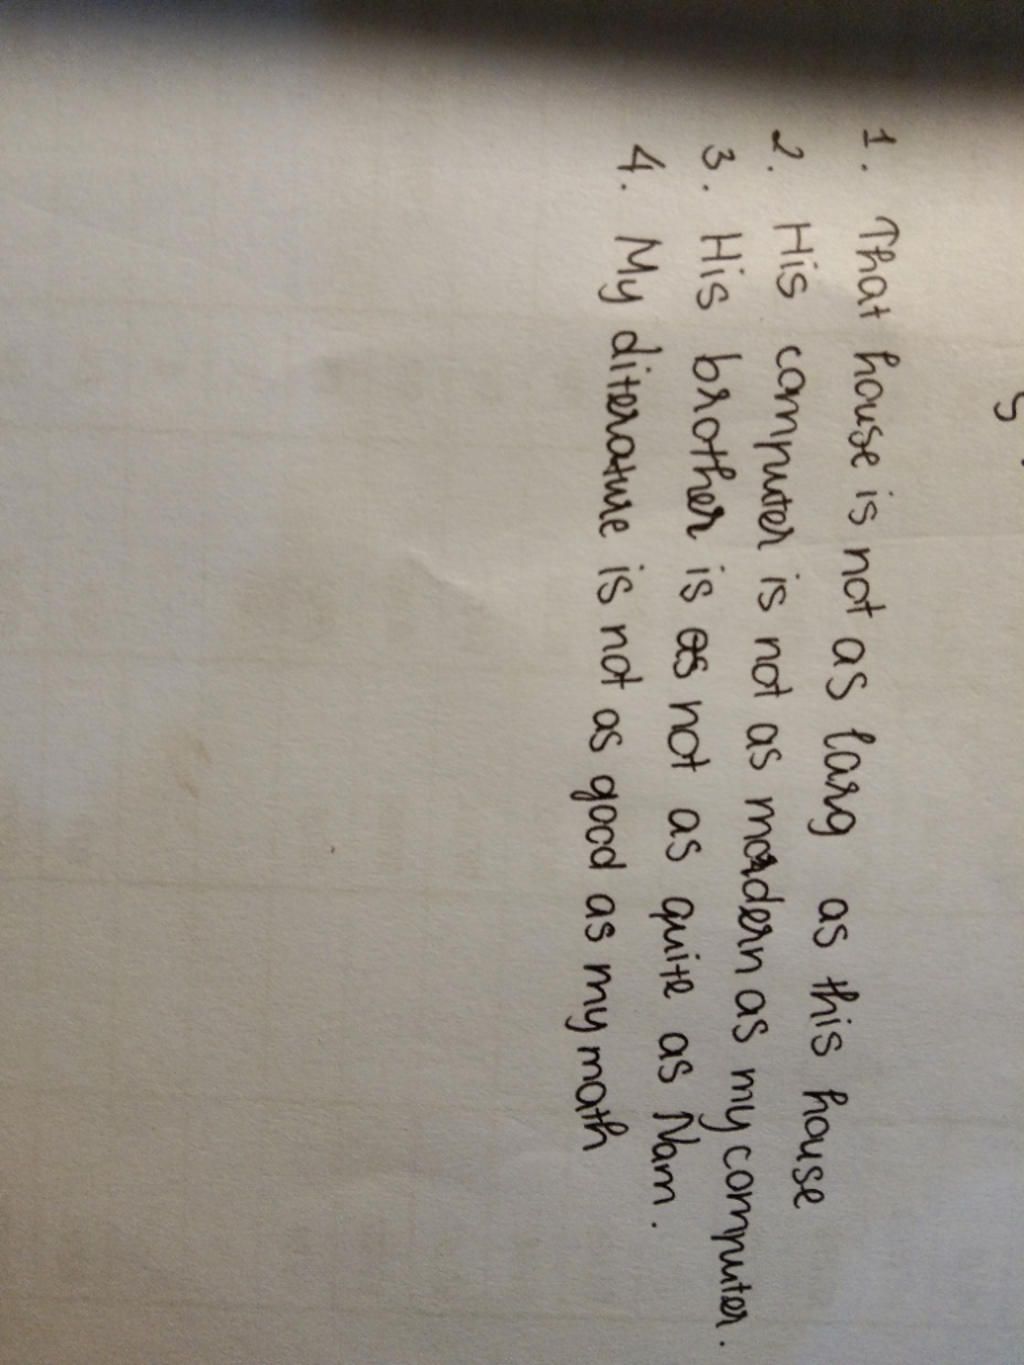 1. That house is not as larg as this house
2. His computer is not as mordern as my computer.
3. His brother is as not as quite as Nam.
4. My diterature is not as good as my math